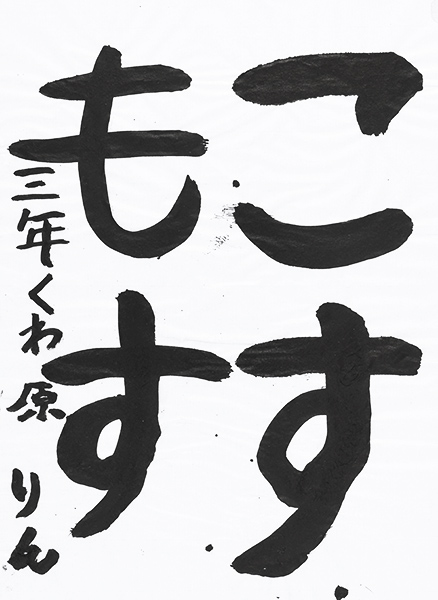 こす
もす
三年くわ原りん